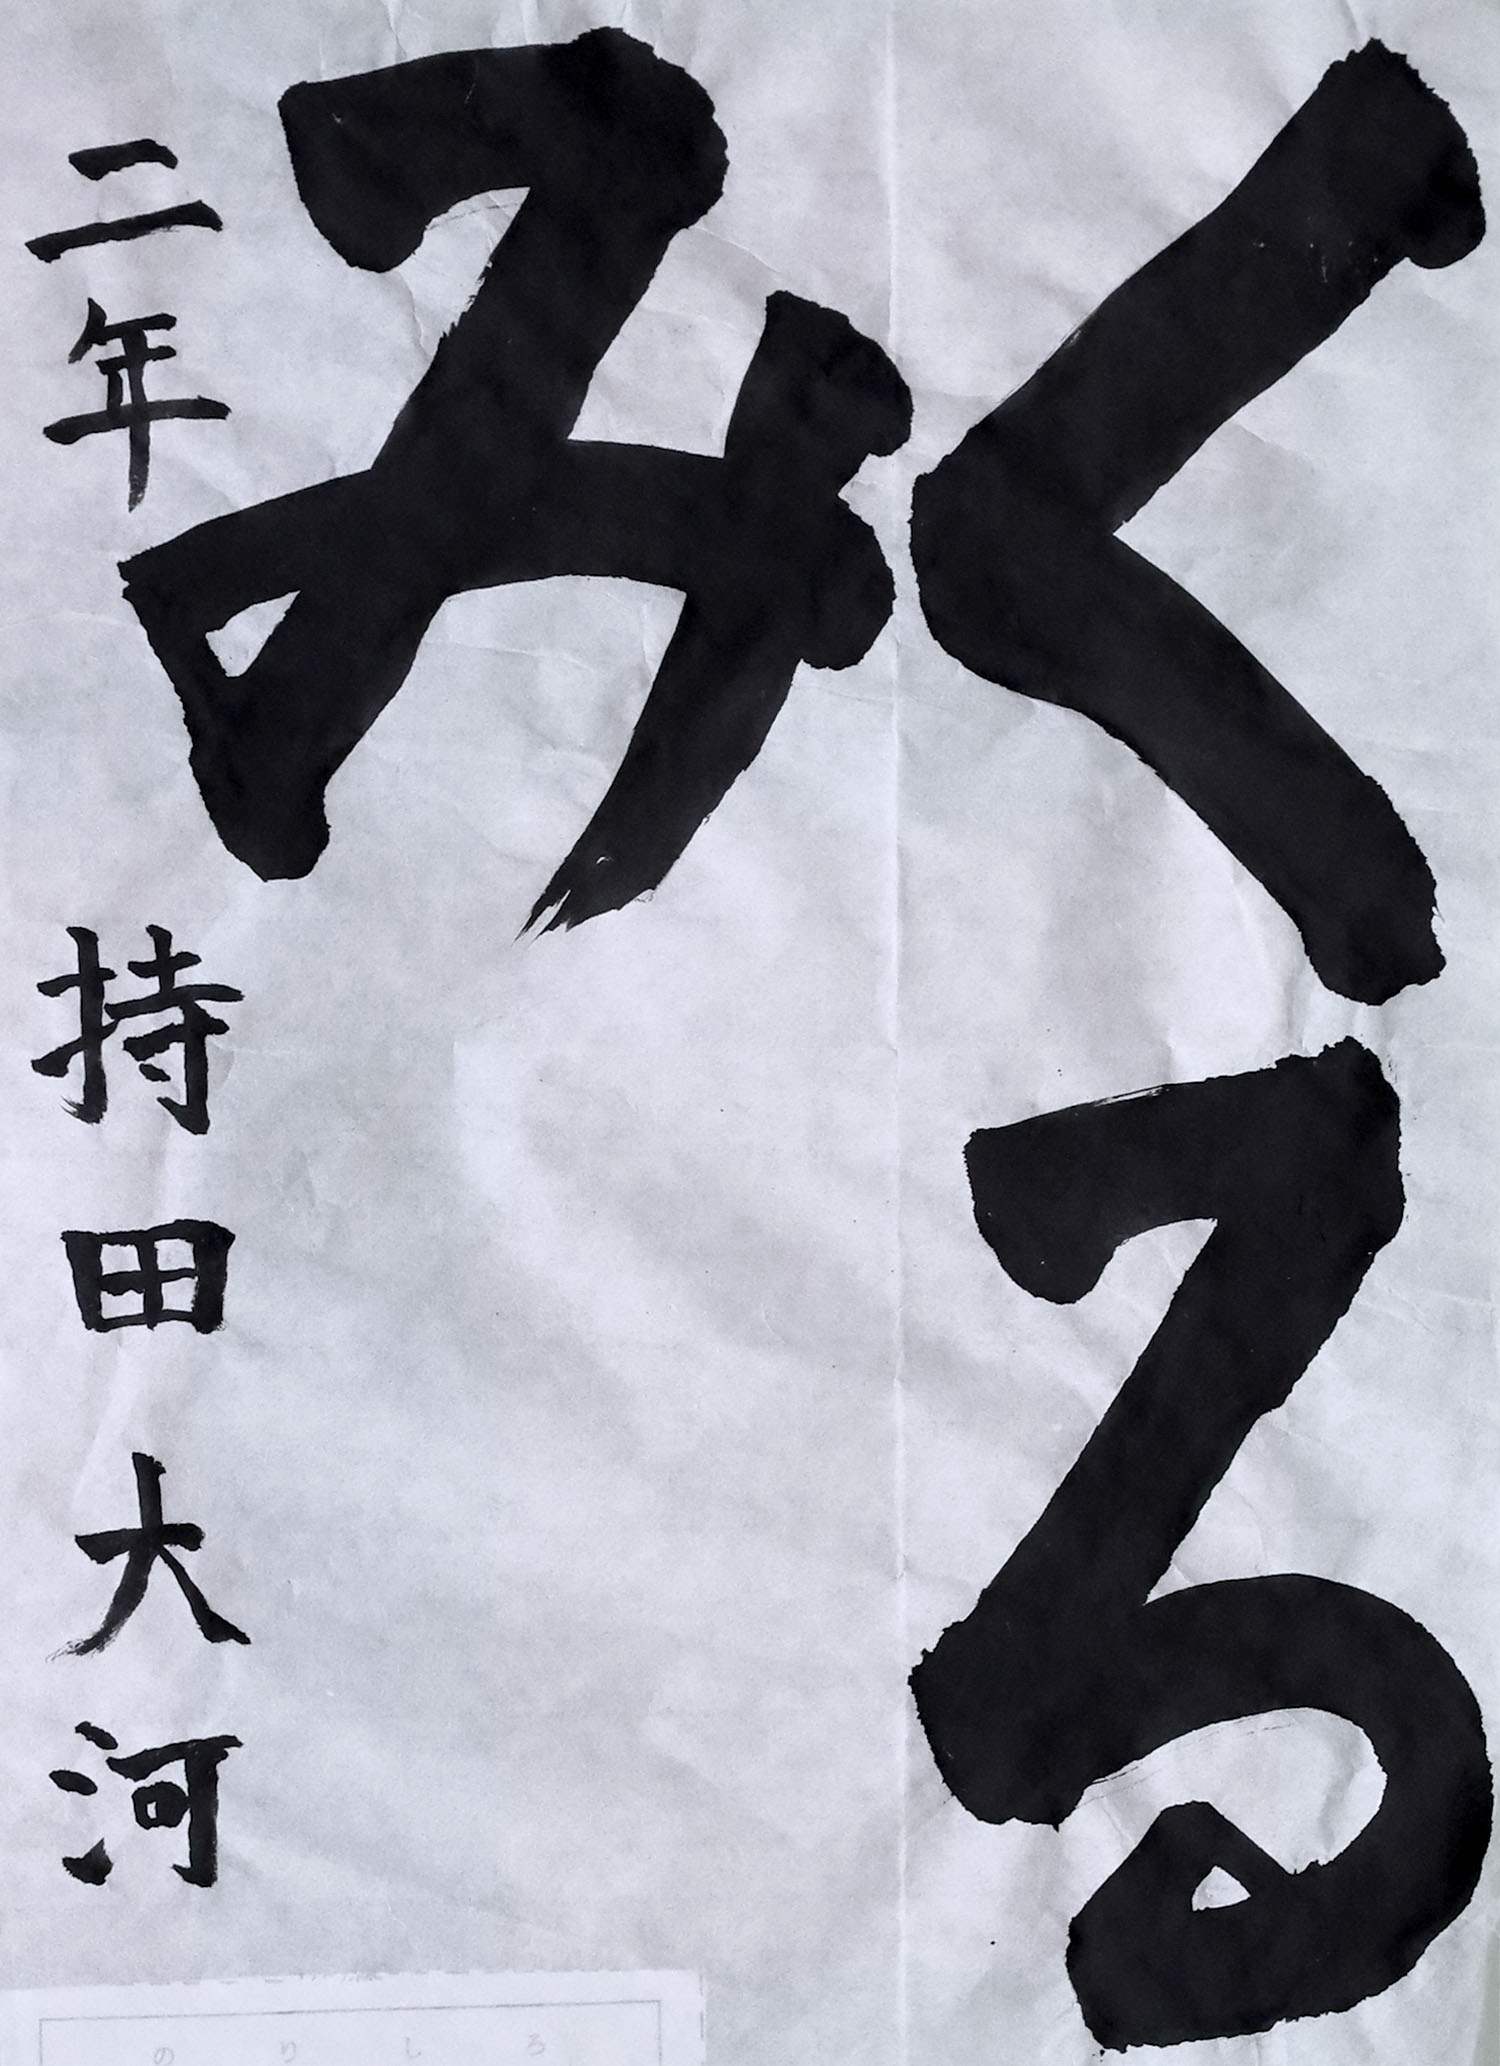 くる
み
二年 持田大河
のりしろ